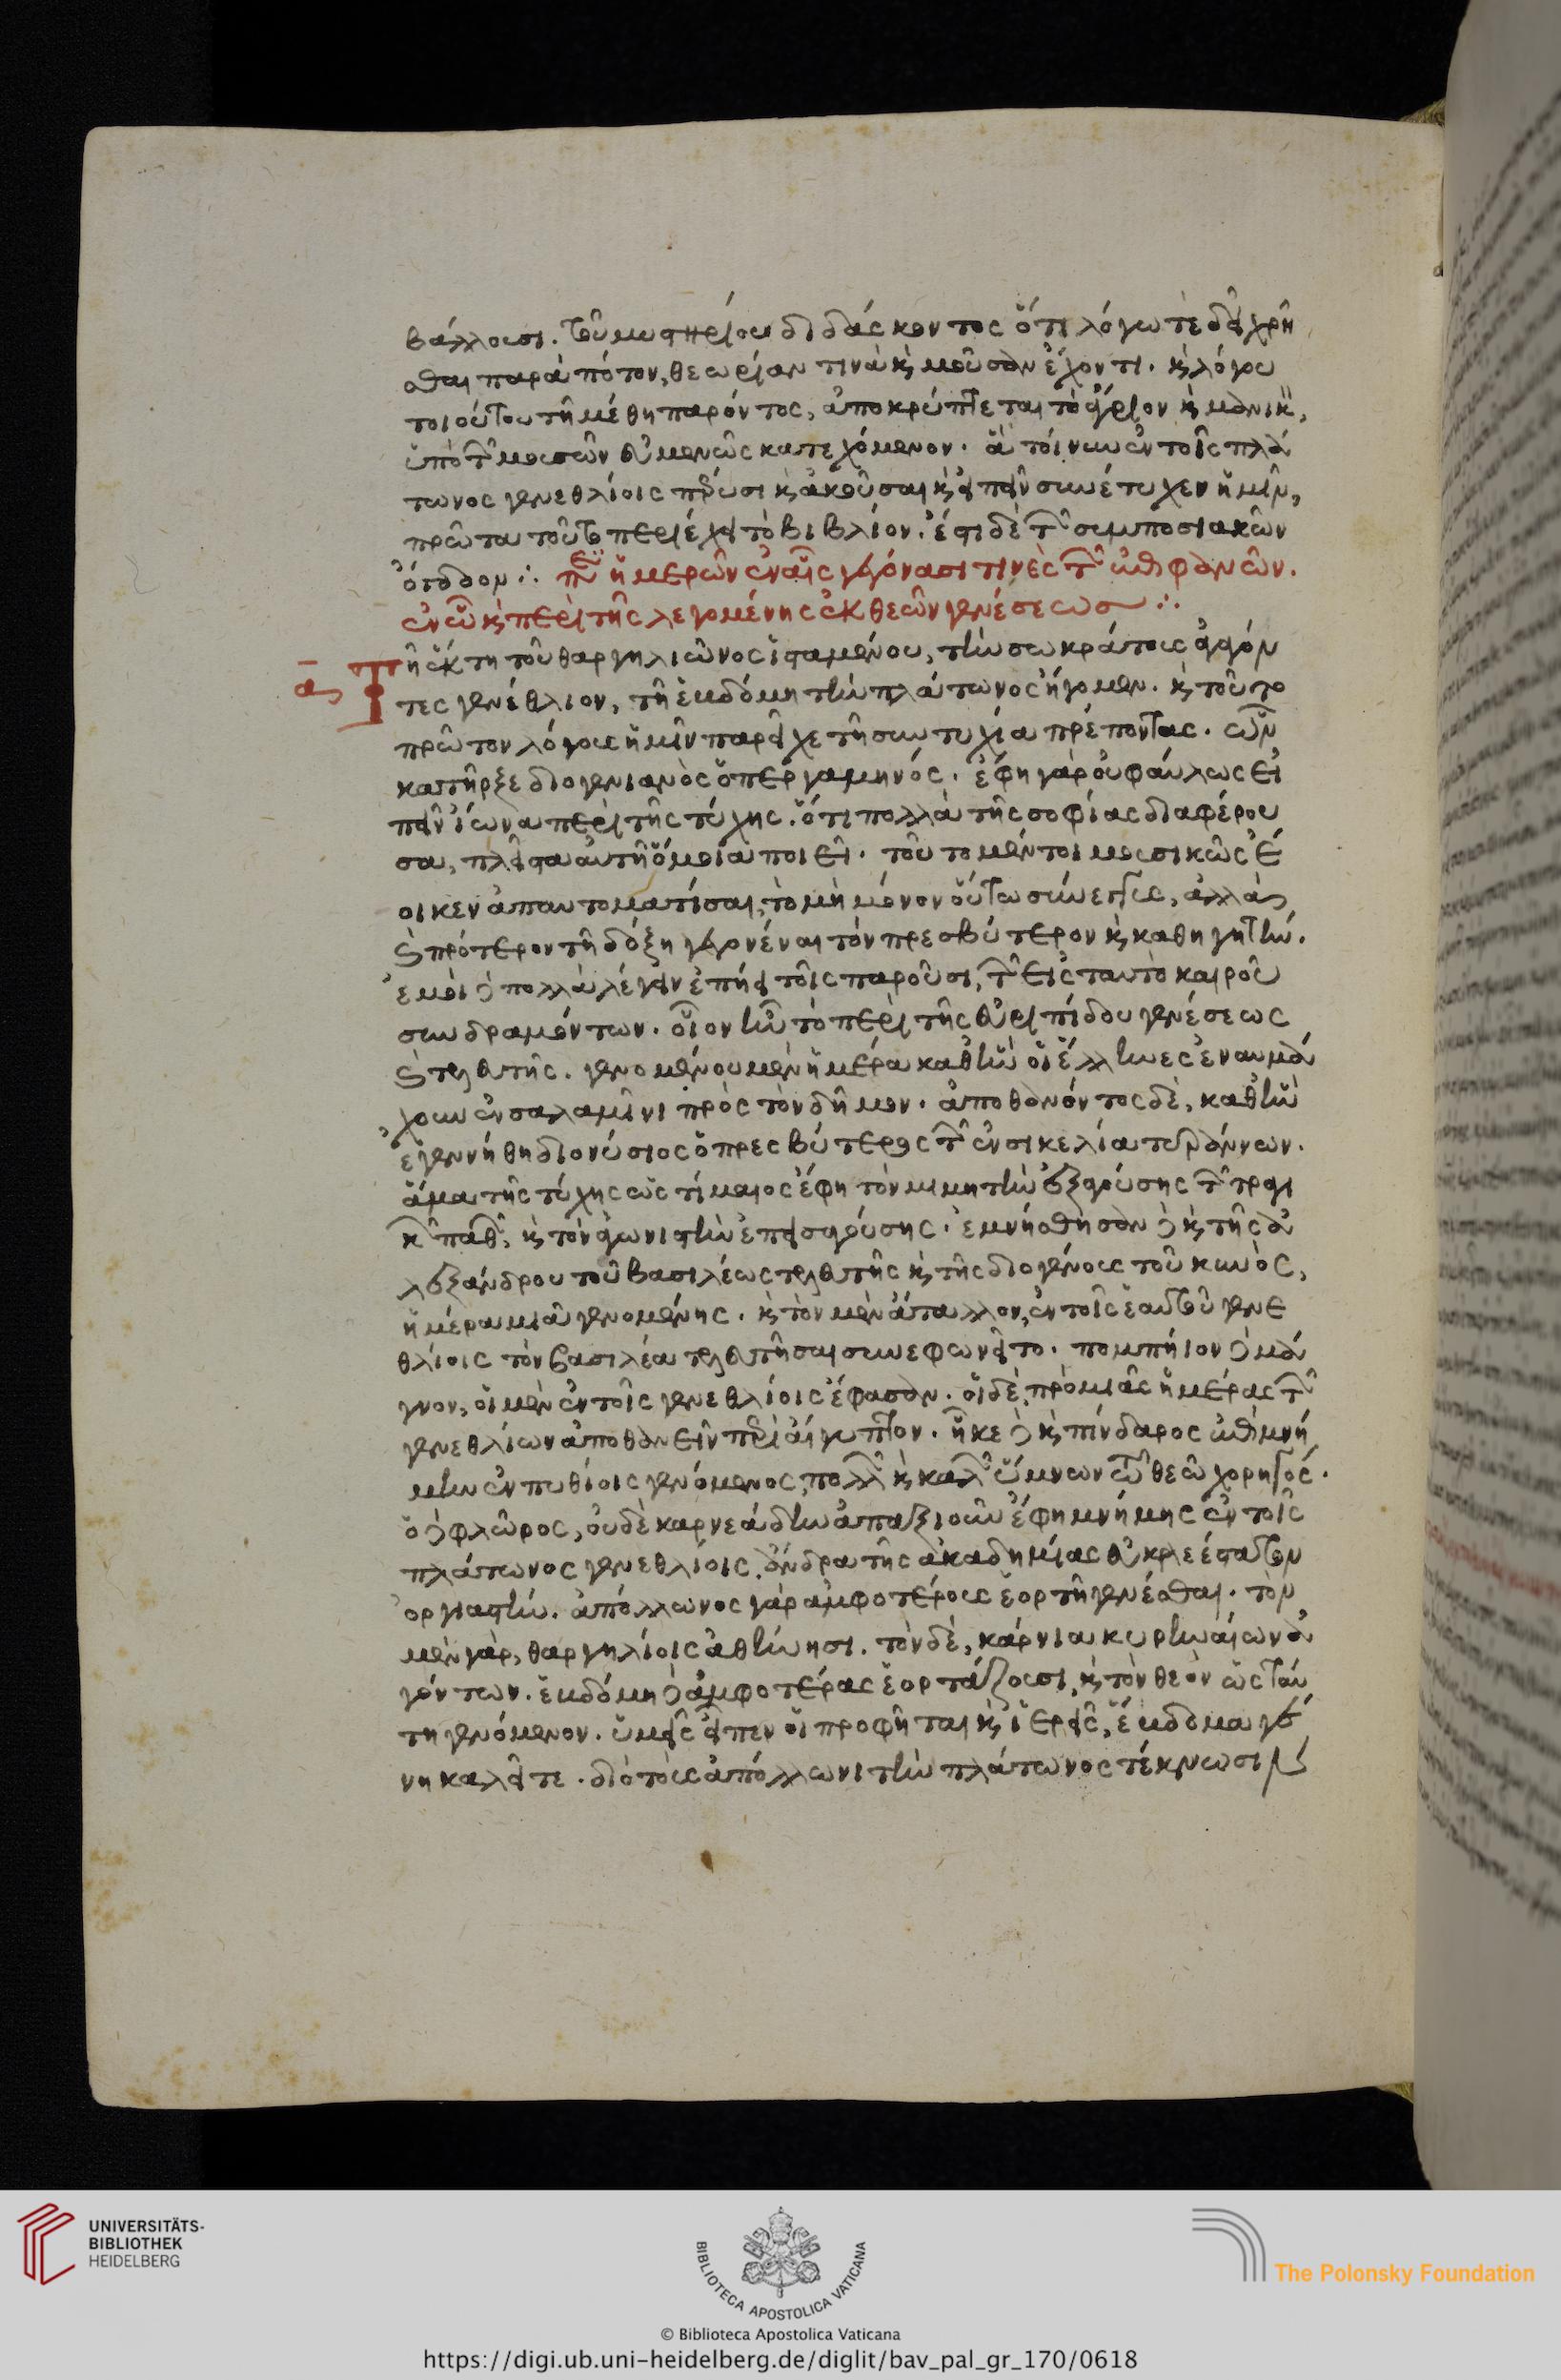 βάλλουσι. τοῦ μυστηρίου διδάσκοντος ὅτι λόγω τὲ δεῖ χρῆ
σθαι παρὰ πότον, θεωρίαν τινὰ κ̀ μοῦσαν ἔχοντι. κ̀ λόγου
τοιούτου τῆ μέθη παρόντος, ἀποκρύπτεται τὸ ἄγριον κ̀ μανικὸν,
ὑπὸ τῶν μουσῶν εὐμενῶς κατεχόμενον. ἃ τοίνυν ἐν τοῖς πλά
τωνος γενεθλίοις πρώην κ̀ ἀκοῦσαι κ̀ εἰπεῖν συνέτυχεν ἡμῖν,
πρῶτα τοῦτο περιέχει τὸ βιβλίον. ἔστι δὲ τῶν συμποσιακῶν
ὄγδοον ∴ περὶ ἡμερῶν ἐν αἷς γεγόνασι τινὲς τῶν ἐπιφανῶν.
ἐν ὧ κ̀ περὶ τῆς λεγομένης ἐκ θεῶν γενέσεως ∴
ᾱ Τῆ ἕκτη τοῦ θαργηλιῶνος ἱσταμένου, τὴν σωκράτους ἀγαγόν
τες γενέθλιον, τῆ ἑβδόμη τὴν πλάτωνος ἤγομεν. κ̀ τοῦτο
πρῶτον λόγους ἡμῖν παρεῖχε τῆ συντυχία πρέποντας. ὧν
κατῆρξε διογενιανὸς ὁ περγαμηνός. ἔφη γὰρ οὐ φαύλως εἰ
πεῖν ἴωνα περὶ τῆς τύχης. ὅτι πολλὰ τῆς σοφίας διαφέρου
σα, πλεῖστα αὐτῆ ὅμοια ποιεῖ. τοῦτο μέντοι μουσικῶς ἔ
οικεν ἀπαυτοματίσαι, τὸ μὴ μόνον οὕτω σύνεγγυς, ἀλλὰ
κ̀ πρότερον τῆ δόξη γεγονέναι τὸν πρεσβύτερον κ̀ καθηγητήν.
ἐμοὶ δὲ πολλὰ λέγειν ἐπήει τοῖς παροῦσι, τῶν εἰς ταυτὸ καιροῦ
συνδραμόντων. οἷον ἦν τὸ περὶ τῆς εὐριπίδου γενέσεως
κ̀ τελευτῆς. γενομένου μὲν ἡμέρα καθ' ἣν οἱ ἕλληνες ἐναυμά
χουν ἐν σαλαμῖνι πρὸς τὸν δῆμον. ἀποθανόντος δὲ, καθ' ἣν
ἐγεννήθη διονύσιος ὁ πρεσβύτερος τῶν ἐν σικελία τυράννων.
ἅμα τῆς τύχης ὡς τίμαιος ἔφη τὸν μιμητὴν ἐξαγούσης τῶν τραγι
κῶν παθῶν, κ̀ τὸν ἀγωνιστὴν ἐπεισαγούσης. ἐμνήσθησαν δὲ κ̀ τῆς ἀ
λεξάνδρου τοῦ βασιλέως τελευτῆς κ̀ τῆς διογένους τοῦ κυνὸς,
ἡμέρα μιᾶ γενομένης. κ̀ τὸν μὲν ἄταλλον, ἐν τοῖς ἑαυτοῦ γενε
θλίοις τὸν βασιλέα τελευτῆσαι συνεφωνεῖτο. πομπήιον δὲ μά
γνον, οἱ μὲν ἐν τοῖς γενεθλίοις ἔφασαν. οἱ δὲ, πρὸ μιᾶς ἡμέρας τῶν
γενεθλίων ἀποθανεῖν περὶ αἴγυπτον. ἧκε δὲ κ̀ πίνδαρος ἐπὶ μνή
μην ἐν πυθίοις γενόμενος, πολλῶν κ̀ καλῶν ὕμνων τῶ θεῶ χορηγός.
ὁ δὲ φλῶρος, οὐδὲ καρνεάδην ἀπαξιοῦν ἔφη μνήμης ἐν τοῖς
πλάτωνος γενεθλίοις. ἄνδρα τῆς ἀκαδημίας εὐκλεέστατον
ὀργιαστήν. ἀπόλλωνος γὰρ ἀμφοτέρους ἑορτῆ γενέσθαι. τὸν
μὲν γὰρ, θαργηλίοις ἀθήνησι. τὸν δὲ, κάρνια κυρηναίων ἀ
γόντων. ἑβδόμη δὲ ἀμφοτέρας ἑορτάζουσι, κ̀ τὸν θεὸν ὡς ταύ
τη γενόμενον. ὑμεῖς εἶπεν οἱ προφῆται κ̀ ἱερεῖς, ἑβδομαγέ
νη καλεῖτε. διὸ τοὺς ἀπόλλωνι τὴν πλάτωνος τέκνωσιν
UNIVERSITÄTS-
BIBLIOTHEK
HEIDELBERG
BIBLIOTECA APOSTOLICA VATICANA
The Polonsky Foundation
© Biblioteca Apostolica Vaticana
https://digi.ub.uni-heidelberg.de/diglit/bav_pal_gr_170/0618